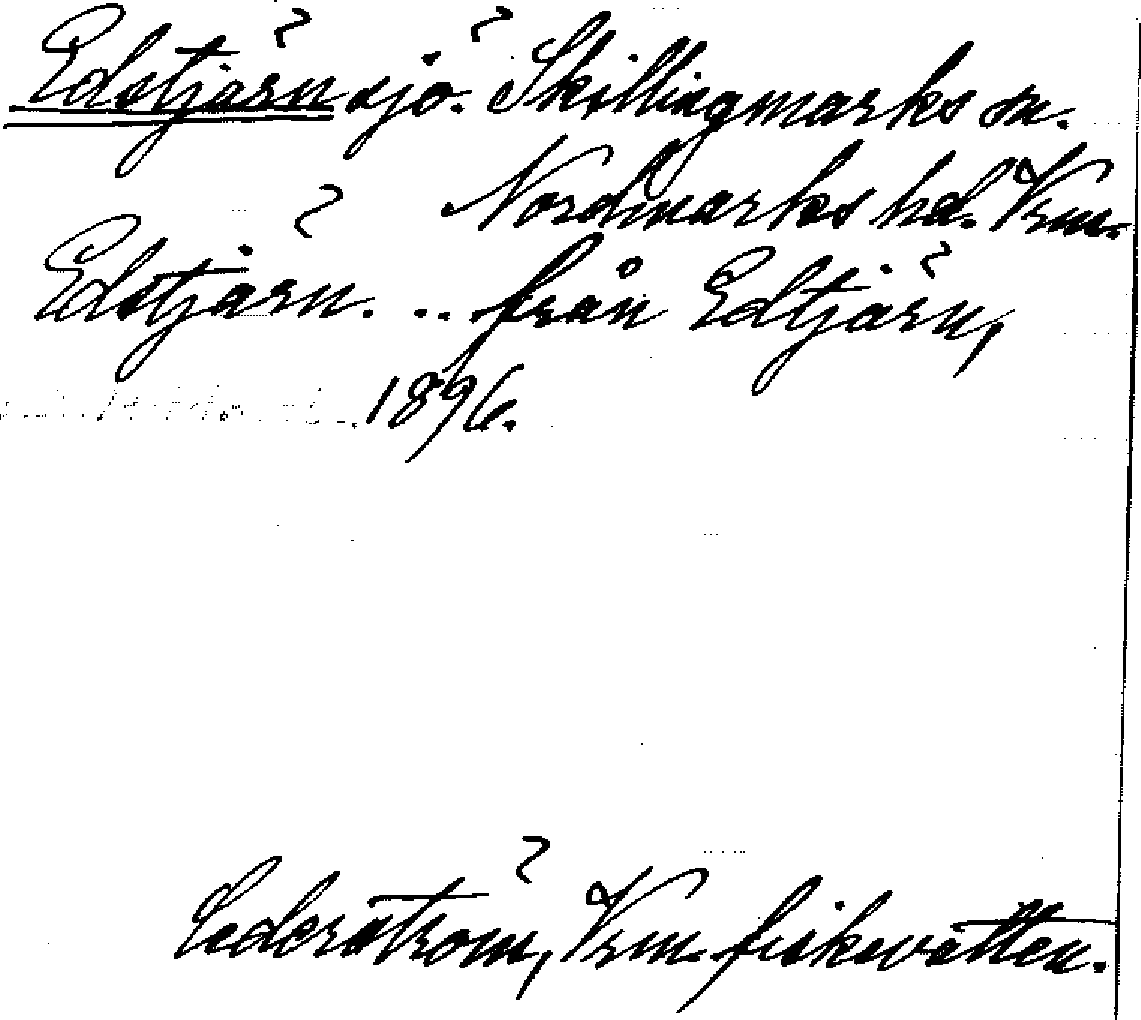 Edstjärn sjö. Skillingmarks sn.
Nordmarks hd. Vrm.
Edstjärn. .. från Edtjärn,
1896.
Cederström, Vrm. fiskevatten.